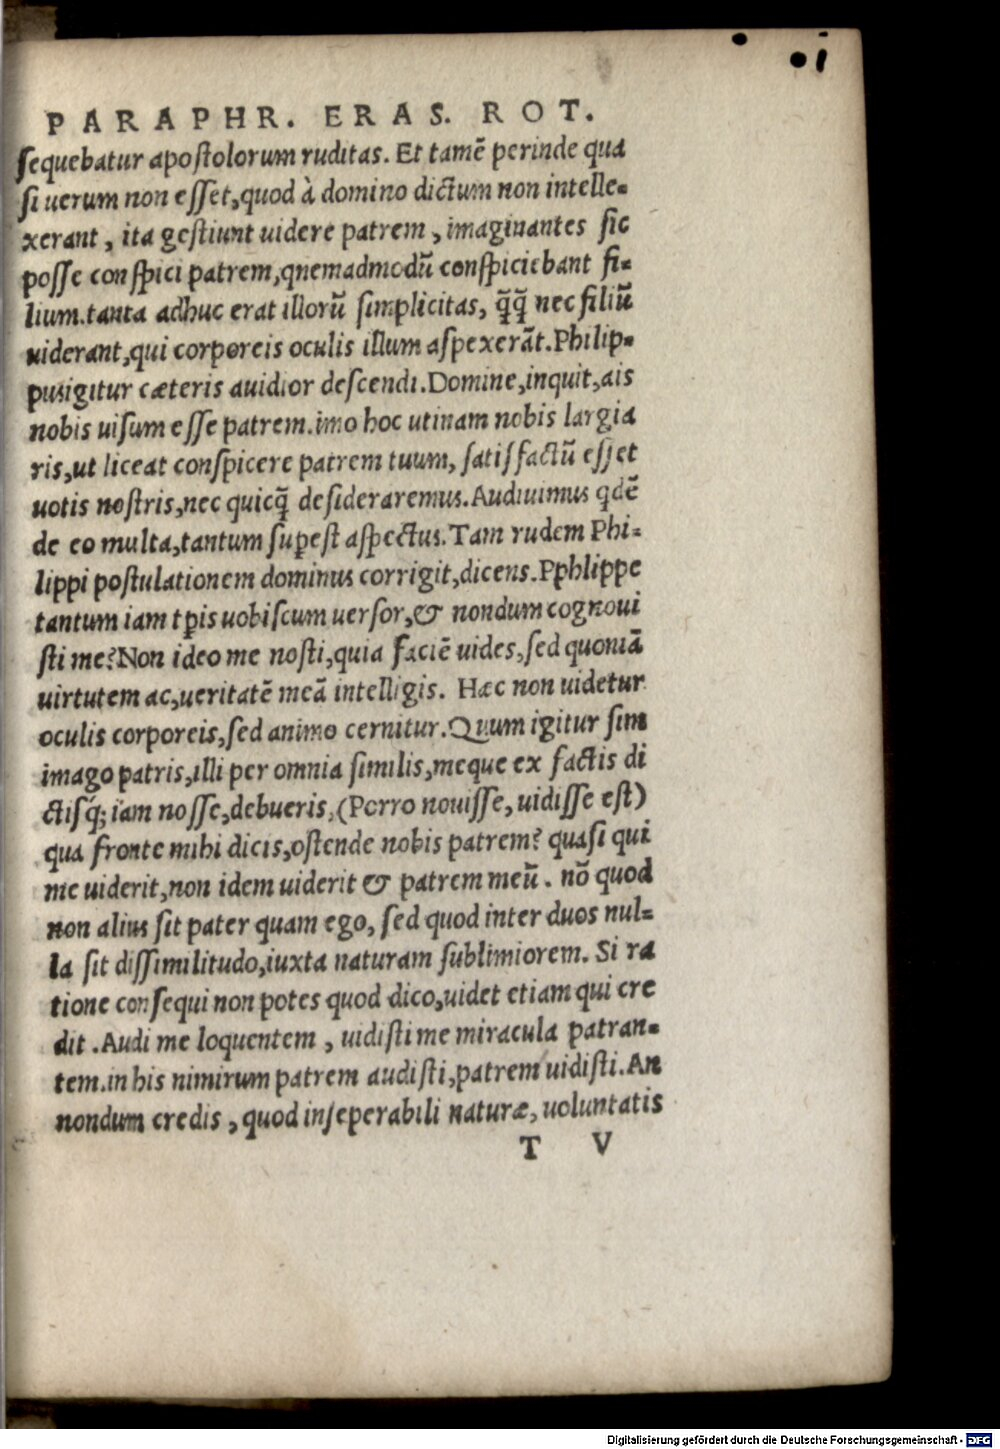 PARAPHR. ERAS. ROT.
ſequebatur apoſtolorum ruditas. Et tamē perinde qua
ſi uerum non eſſet, quod à domino dictum non intelle-
xerant, ita geſtiunt uidere patrem, imaginantes ſic
poſſe conſpici patrem, qnemadmodū conſpiciebant fi-
lium. tanta adhuc erat illorū ſimplicitas, q̄q̄ nec filiū
uiderant, qui corporeis oculis illum aſpexerāt. Philip-
pus igitur cæteris auidior deſcendi. Domine, inquit, ais
nobis uiſum eſſe patrem. imo hoc utinam nobis largia
ris, ut liceat conſpicere patrem tuum, ſatiſfactū eſſet
uotis noſtris, nec quicq̄ deſideraremus. Audiuimus qdē
de eo multa, tantum ſupeſt aſpectus. Tam rudem Phi-
lippi poſtulationem dominus corrigit, dicens. Pphlippe
tantum iam tpis uobiſcum uerſor, & nondum cognoui
ſti me? Non ideo me noſti, quia faciē uides, ſed quoniā
uirtutem ac, ueritatē meā intelligis. Hæc non uidetur
oculis corporeis, ſed animo cernitur. Quum igitur ſim
imago patris, illi per omnia ſimilis, meque ex factis di
ctiſq́; iam noſſe, debueris, (Porro nouiſſe, uidiſſe eſt)
qua fronte mihi dicis, oſtende nobis patrem? quaſi qui
me uiderit, non idem uiderit & patrem meū. nō quod
non alius ſit pater quam ego, ſed quod inter duos nul-
la ſit diſſimilitudo, iuxta naturam ſublimiorem. Si ra
tione conſequi non potes quod dico, uidet etiam qui cre
dit. Audi me loquentem, uidiſti me miracula patran-
tem. in his nimirum patrem audiſti, patrem uidiſti. An
nondum credis, quod inſeperabili naturæ, uoluntatis
T V
Digitalisierung gefördert durch die Deutsche Forschungsgemeinschaft - DFG